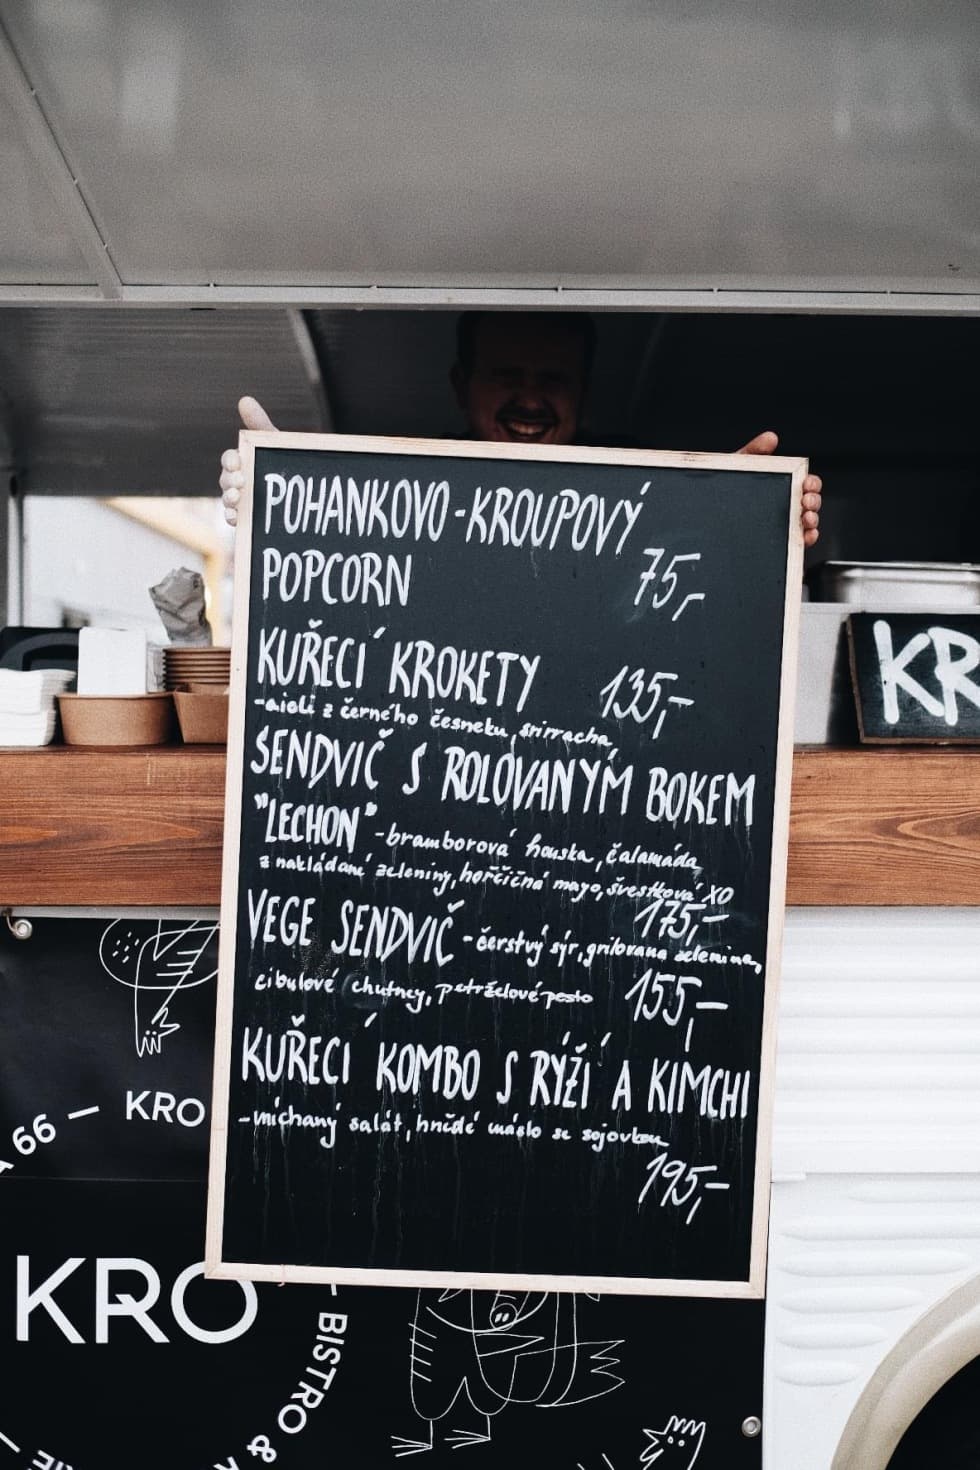 POHANKOVO-KROUPOVÝ
POPCORN 75,-
KUŘECÍ KROKETY 135,-
-aioli z černého česneku, sriracha,
SENDVIČ S ROLOVANÝM BOKEM
"LECHON" -bramborová houska, čalamáda
z nakládané zeleniny, hořčičná mayo, švestková XO
175,-
VEGE SENDVIČ -čerstvý sýr, grilovana zelenina,
cibulové chutney, petrželové pesto 155,-
KUŘECÍ KOMBO S RÝŽÍ A KIMCHI
-míchaný salát, hnědé máslo se sojovkou
195,-
KR
66 — KRO
KRO
- BISTRO &